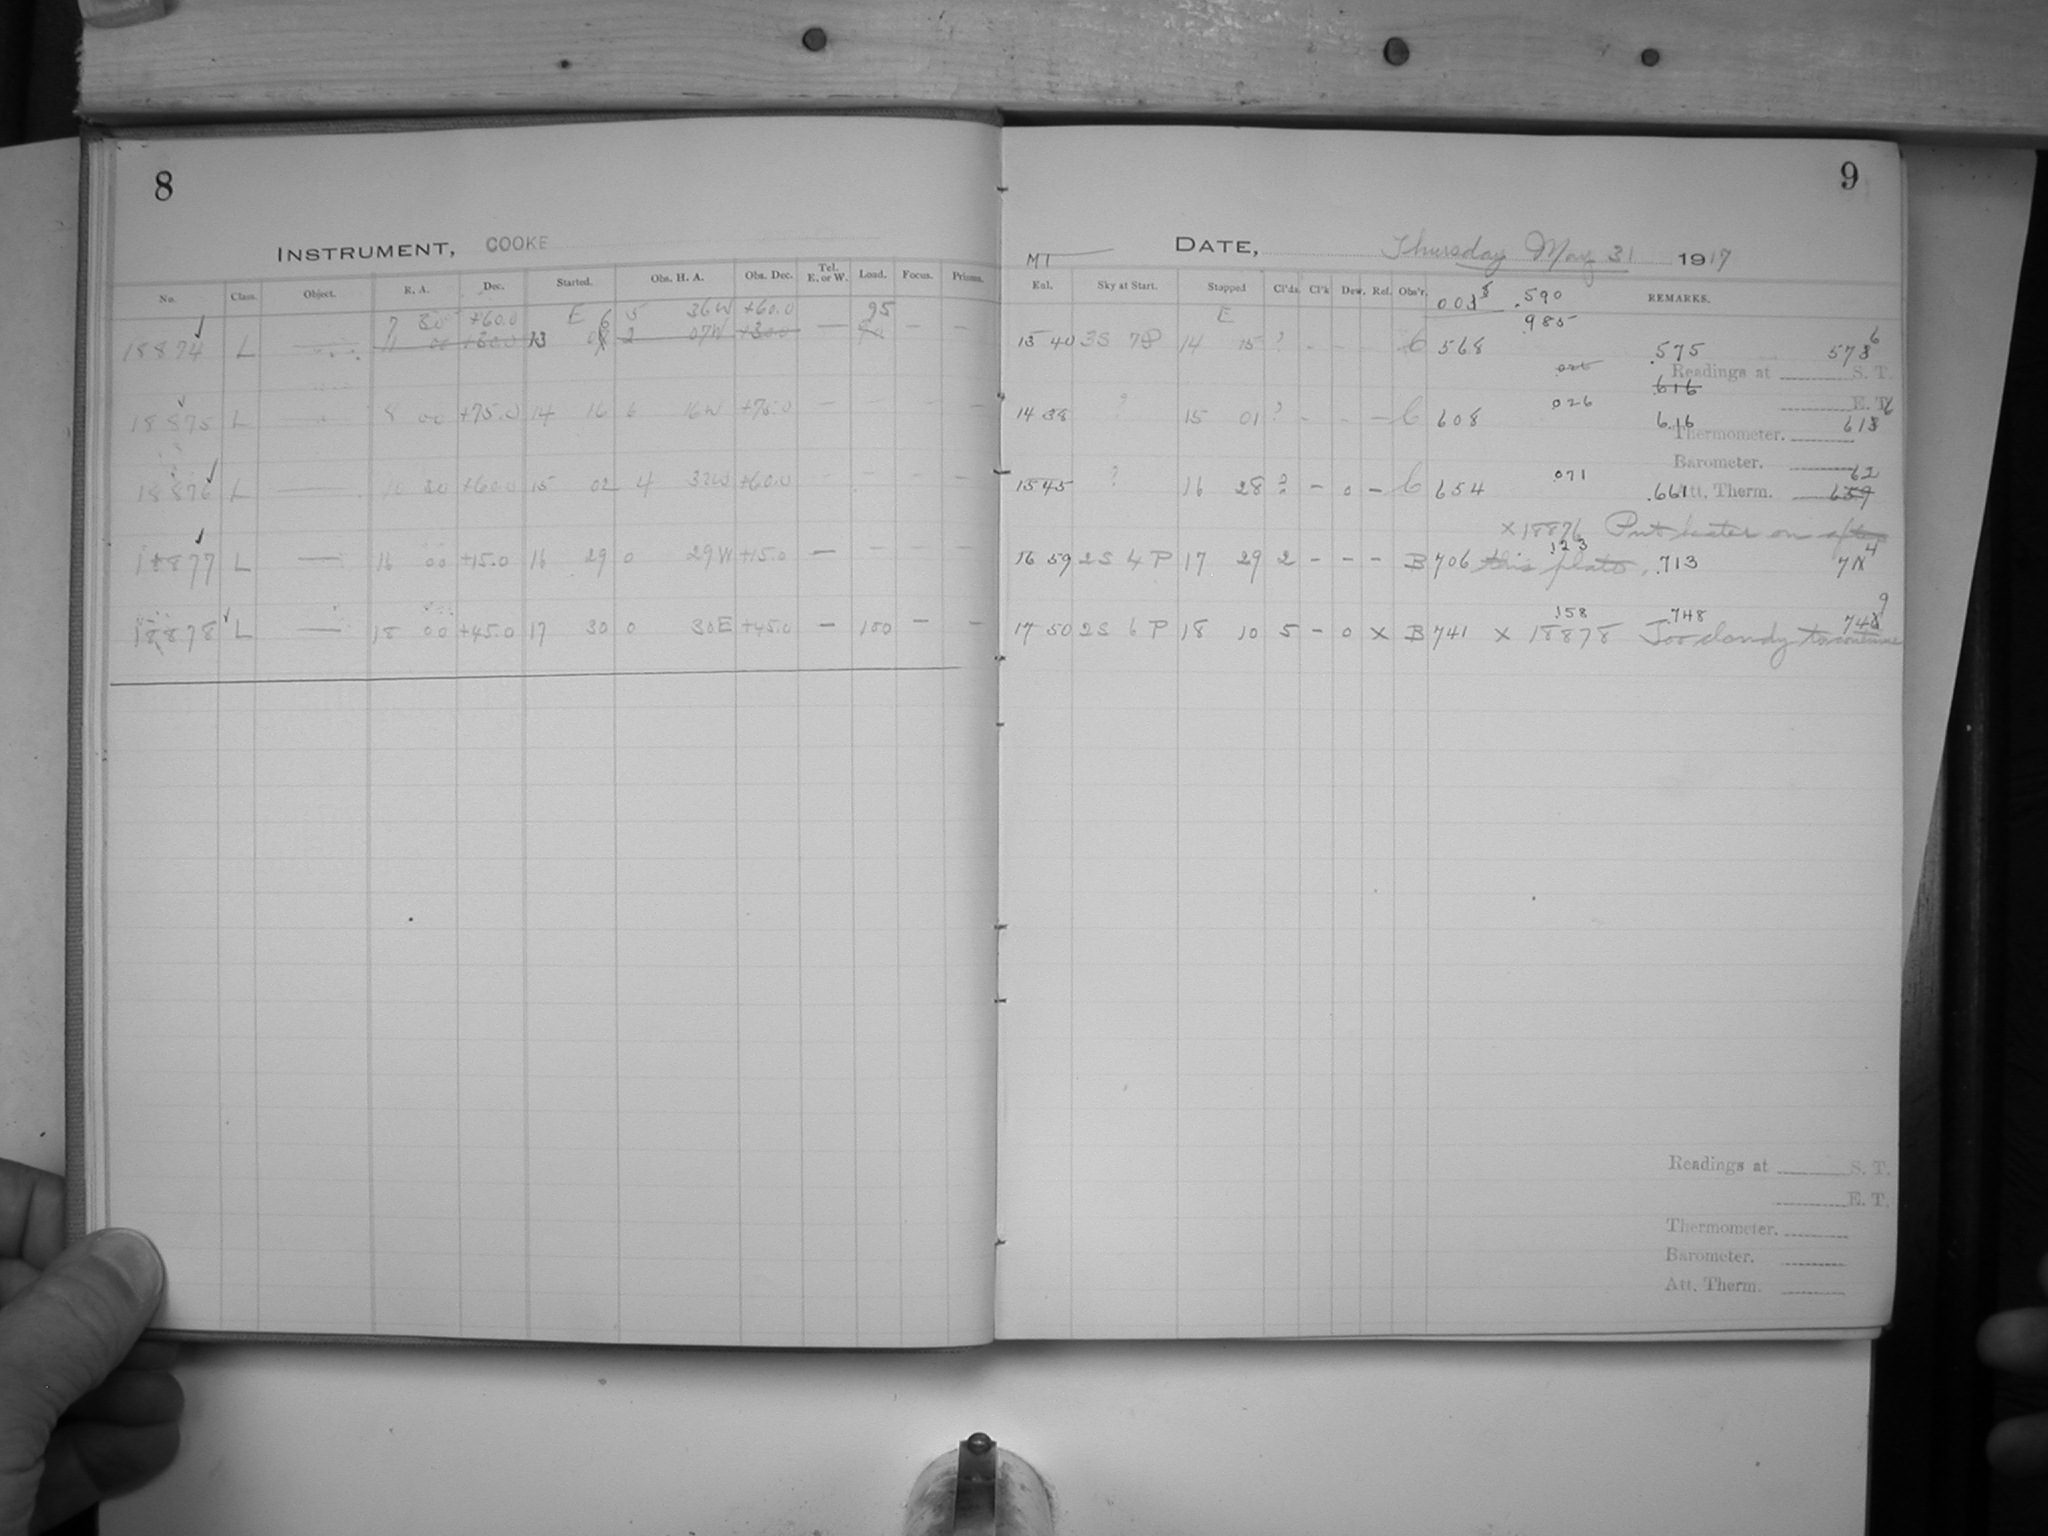 8
INSTRUMENT, COOKE
No. Class. Object. R. A. Dec. Started. Obs. H. A. Obs. Dec. Tel. E. or W. Load. Focus. Prisms.
7 30 +60.0 E 6 5 36W +60.0 95
18874 L — 11 00 +30.0 13 2 07W +30.0 — — —
18875 L 8 00 +75.0 14 16 6 16W +75.0 — — — —
18876 L — 10 30 +60.0 15 02 4 32W +60.0 — — — —
18877 L — 16 00 +15.0 16 29 0 29W +15.0 — — — —
18878 L — 18 00 +45.0 17 30 0 30E +45.0 — 100 — —
9
DATE, Thursday May 31 1917
MT
Enl. Sky at Start. Stopped Cl'ds. Cl'k Dew. Ref. Obs'r. .590 REMARKS.
E .985
13 40 3S 7P 14 15 ? - - C 568 .575
Readings at S. T.
616
14 38 ? 15 01 ? - - - C 608 026 616
E. T.
Thermometer.
Barometer. 62
15 45 ? 16 28 ? - 0 - C 654 .071 .661 659
Att. Therm.
x 18876 Put heater on after
16 59 2S 4 P 17 29 2 - - - B 706 this plate. 123 .713
17 50 2S 6 P 18 10 5 - 0 x B 741 .158 .748
x 18878 Too cloudy to continue
Readings at S. T.
E. T.
Thermometer.
Barometer.
Att. Therm.